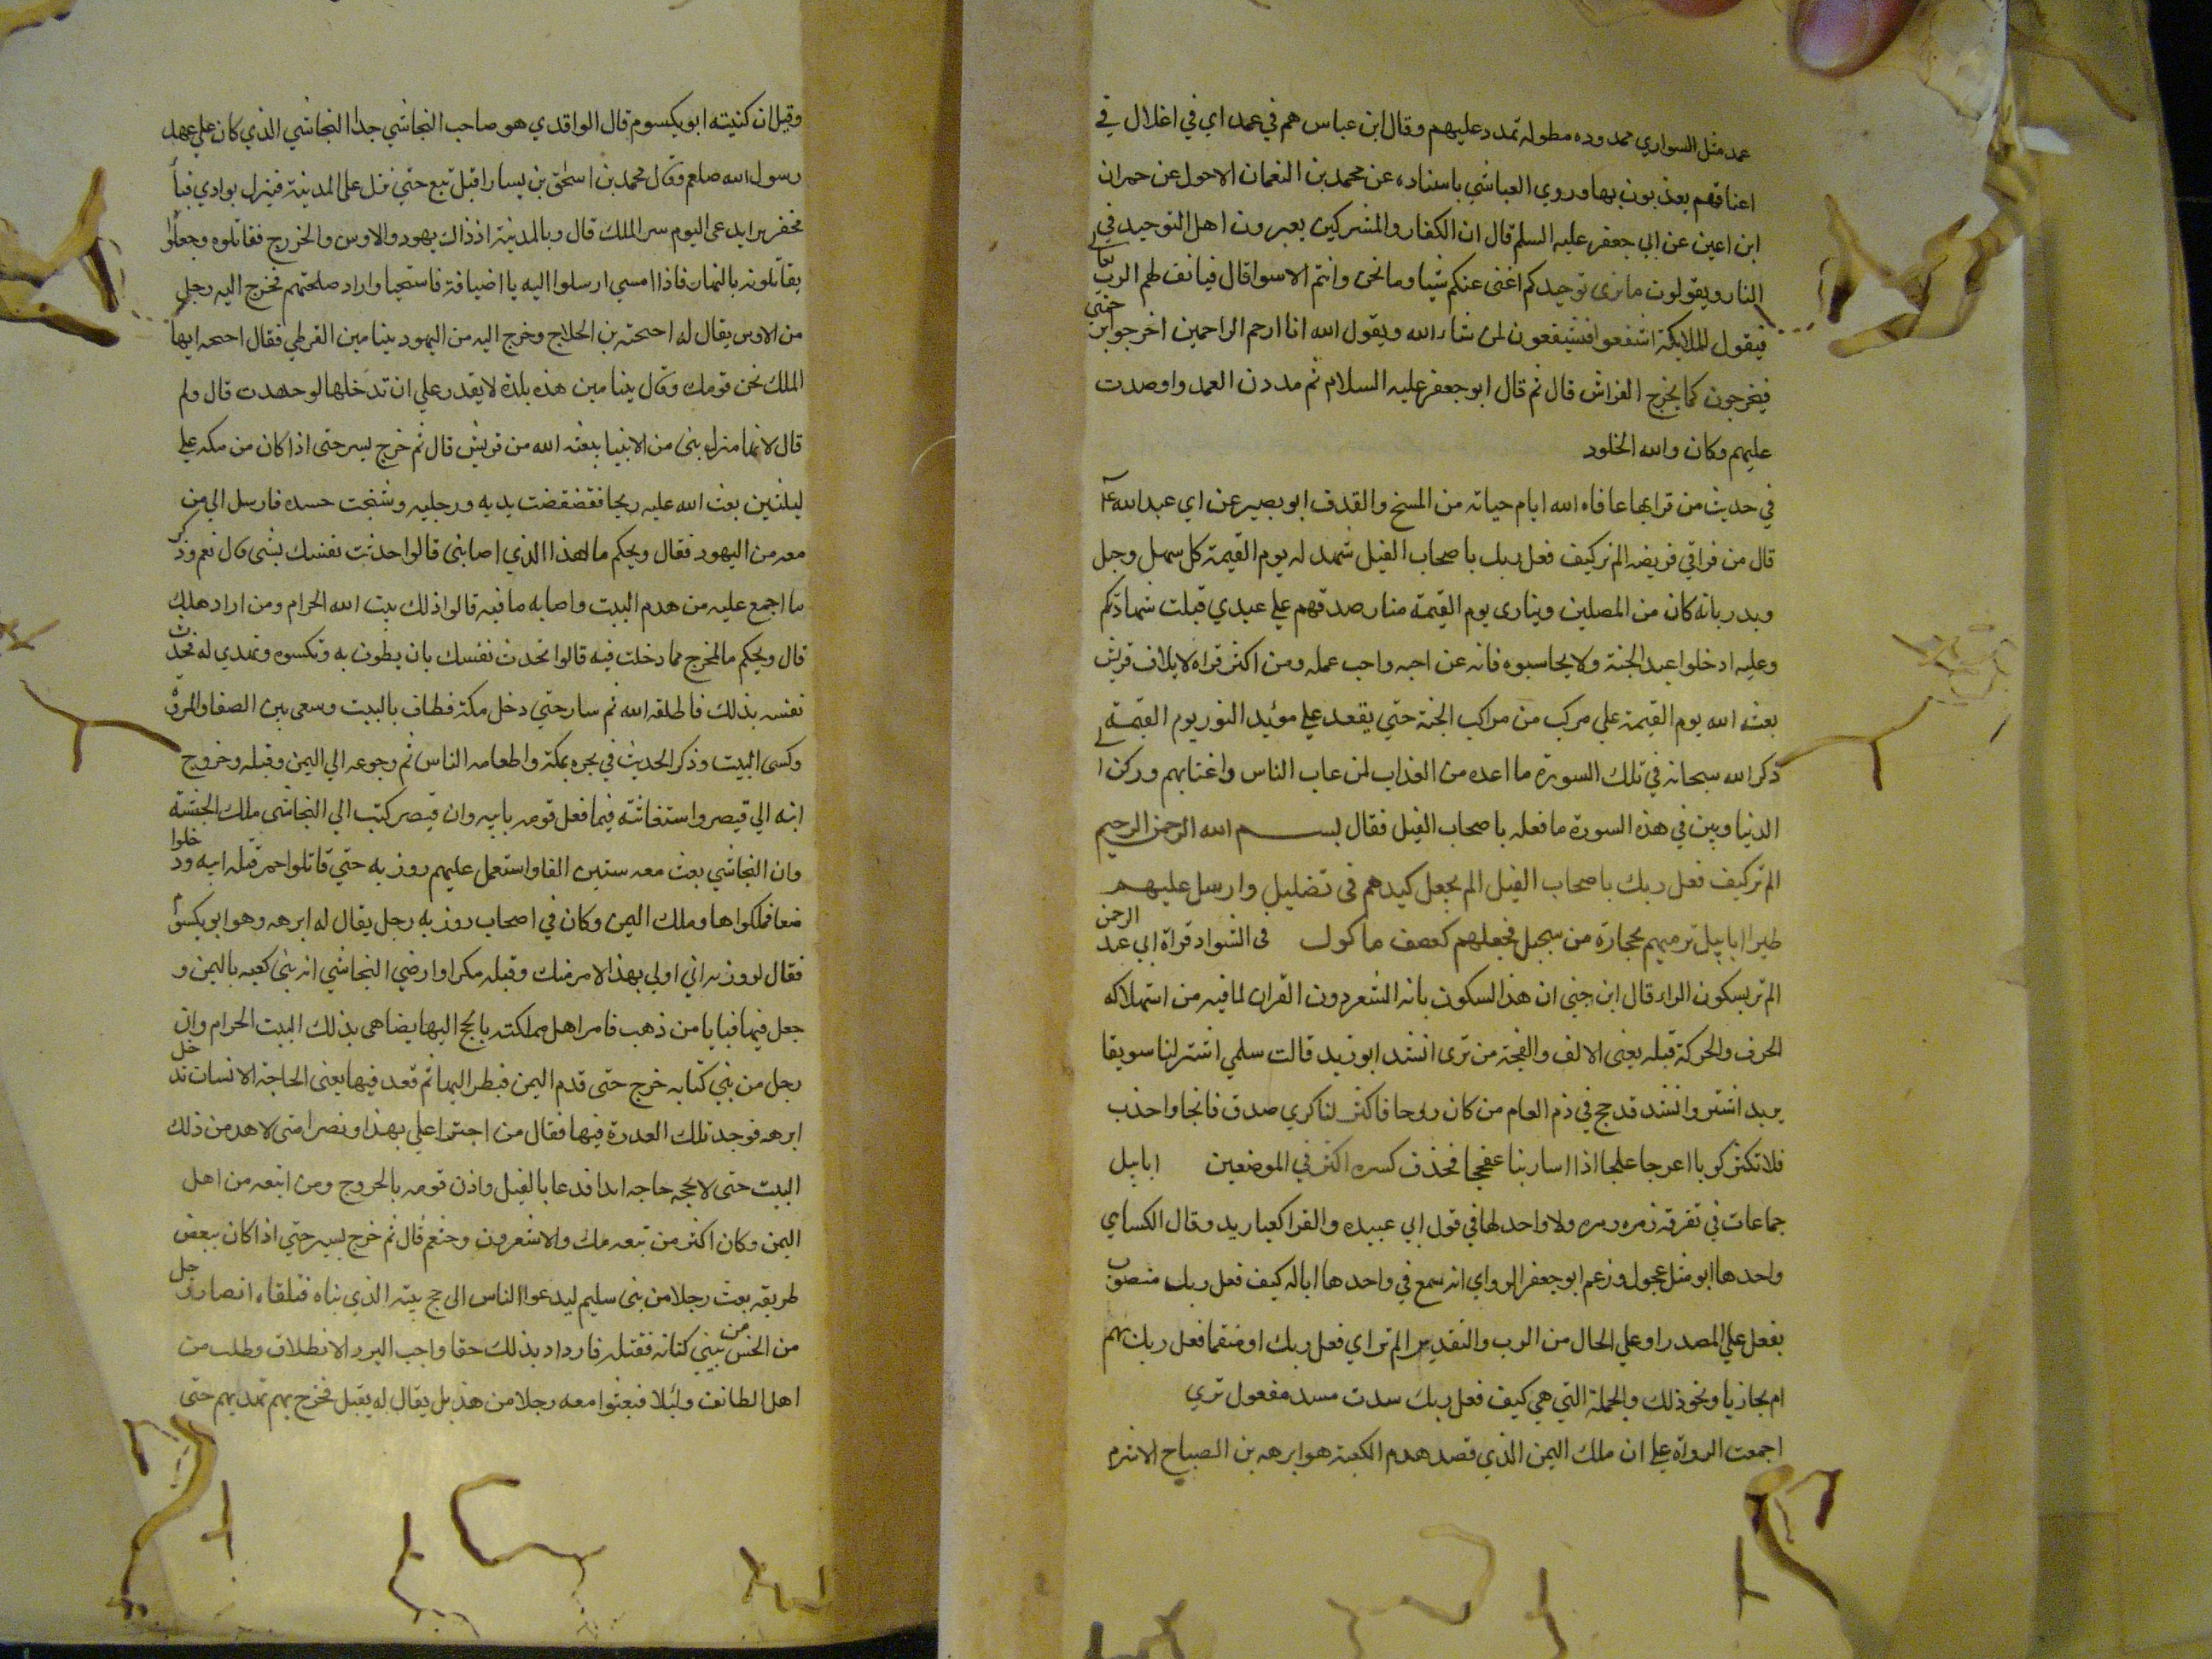 عمد مثل السواري ممدوده مطوله تمدد عليهم وقال ابن عباس هم في عمد اي في اغلال في
اعناقهم يعذبون بها وروي العياشي باسناده عن محمد بن النعمان الاحول عن حمران
ابن اعين عن ابي جعفر عليه السلم قال ان الكفار والمشركين يعيرون اهل التوحيد في
النار ويقولون ما نرى توحيدكم اغنى عنكم شيا وما نحن وانتم الا سوا قال فيانف لهم الرب تعا
فيقول للملايكة اشفعوا فيشفعون لمن شاء الله ويقول الله انا ارحم الراحمين اخرجوا برحمتي
فيخرجون كما يخرج الفراش قال ثم قال ابو جعفر عليه السلام ثم مددن العمد واوصدت
عليهم وكان والله الخلود
في حديث من قرابها عافاه الله ايام حياته من المسخ والقذف ابو بصير عن ابي عبد الله
قال من قرا في فريضه الم تر كيف فعل ربك باصحاب الفيل شهد له يوم القيمة كل سهل وجبل
ومدر بانه كان من المصلين وينادى يوم القيمة مناد صدقتم علي عبدي قبلت شهادتكم
وعليه ادخلوا عبد الجنة ولا يحاسبوه فانه عن احبه واحب عمله ومن اكثر قراه لايلاف قريش
بعث الله يوم القيمة علي مركب من مراكب الجنة حتي يقعد علي موئيد النور يوم القيمة
ذكر الله سبحانه في تلك السورة ما اعده من العذاب لمن عاب الناس واغتابهم وركن ا
الدنيا وبين في هذه السورة ما فعله باصحاب الفيل فقال بسم الله الرحمن الرحيم
الم تر كيف فعل ربك باصحاب الفيل الم يجعل كيدهم في تضليل وارسل عليهم
طيرا ابابيل ترميهم بحجارة من سجيل فجعلهم كعصف ماكول في الشواد قراة ابي عبد الرحمن
الم تر بسكون الراء قال ابن جني ان هذا السكون بانه الشعر دون القران لما فيه من استهلاكه
الحرف والحركة قبله يعنى الالف والفتحة من ترى انشد ابو زيد قالت سلمي اشتر لنا سويقا
يريد اشتر وانشد قد حج في ذم العام من كان رجا فاكثر لنا كري صدق فانجا واحذب
فلا تكثر كريا اعرجا علجا اذا سار بنا عفججا فحذف كسره اكثر في الموضعين ابابيل
جماعات في تفرقة زمره زمره ولا واحد لها في قول ابي عبيده والفرا كعباديد وقال الكساي
واحدها ابو مثل عجول وزعم ابو جعفر الرواي انه سمع في واحدها اباله كيف فعل ربك منصوب
بفعل علي المصدر او علي الحال من الرب والتقدير الم تر اي فعل ربك او منتقما فعل ربك بهم
ام مجازيا ونحو ذلك والجملة التي هي كيف فعل ربك سدت مسد مفعول تري
اجمعت الرواة علي ان ملك اليمن الذي قصد هدم الكعبة هو ابرهه بن الصباح الاشرم
وقيل ان كنيته ابو يكسوم قال الواقدي هو صاحب النجاشي جد النجاشي الذي كان علي عهد
رسول الله صلعم وقال محمد بن اسحق بن يسار اقبل تبع حتي نزل علي المدينة فينزل بوادي قبا
فحفر بيرا يدعى اليوم سر الملك قال وبالمدينة اذ ذاك يهود والاوس والخزرج فقاتلوه وجعلوا
يقاتلونه بالنهار فاذا امسي ارسلوا اليه ياضيافة فاستحيا واراد صلحتهم فخرج اليه رجل
من الاوس يقال له احيحة بن الحلاج وخرج اليه من اليهود بنيامين القرظي فقال احيحه ايها
الملك نحن قومك وقال بنيامين هذه بلدة لا يقدر علي ان تدخلها لو جهدت قال ولم
قال لانها منزل بني من الانبيا يبعثه الله من قريش قال ثم خرج يسير حتى اذا كان من مكه علي
ليلتين بعث الله عليه ريحا فقضقضت يديه ورجليه وشنجت حسده فارسل الي من
معه من اليهود فقال ويحكم ما لهذا الذي اصابني قالوا حدثت نفسك بشي قال نعم وذكر
ما اجمع عليه من هدم البيت واصابه ما فيه قالوا ذلك بيت الله الحرام ومن اراد هلك
قال ويحكم ما المخرج مما دخلت فيه قالوا تحدث نفسك بان يطون به وتكسوه وتهدي له فحدث
نفسه بذلك فاطلقه الله ثم سار حتي دخل مكة فطاف بالبيت وسعى بين الصفا والمروة
وكسى البيت وذكر الحديث في نحره بمكة واطعامه الناس ثم رجوعه الي اليمن وقتله وخروج
ابنه الي قيصر واستغاثته فيما فعل قومه بابيه وان قيصر كتب الي النجاشي ملك الحبشة
وان النجاشي بعث معه ستين الفا واستعمل عليهم روزبه حتي قاتلوا حمر قتله ابيه ودخلوا
ضعا فملكواها وملك اليمن وكان في اصحاب روزبه رجل يقال له ابرهه وهو ابو يكسوم
فقال لروزبه اني اولي بهذا الامر منك وقتله مكرا وارضي النجاشي انه بني كعبه باليمن و
جعل فيها قبابا من ذهب فامر اهل مملكته بالحج اليها يضاهى بذلك البيت الحرام وان
رجل من بني كنانه خرج حتى قدم اليمن فنظر اليها ثم قعد فيها يعنى الحاجة الانسان فدخل
ابرهه فوجد تلك العدرة فيها فقال من اجترا علي بهذا ونصرانيتى لاهدمن ذلك
البيت حتى لا يحجه حاجه ابدا فدعا بالفيل واذن قومه بالخروج ومن اتبعه من اهل
اليمن وكان اكثر من تبعه عك والاشعرون وخثعم قال ثم خرج يسير حتي اذا كان ببعض
طريقه بعث رجلا من بنى سليم ليدعوا الناس الى حج بيته الذي بناه فتلقاه انصار رجل
من الخمس من بني كنانه فقتله فازداد بذلك حقا واجب اليرد الانطلاق وطلب من
اهل الطائف وليلا فبعثوا معه رجلا من هذيل يقال له يقبل فخرج بهم تهديهم حتى